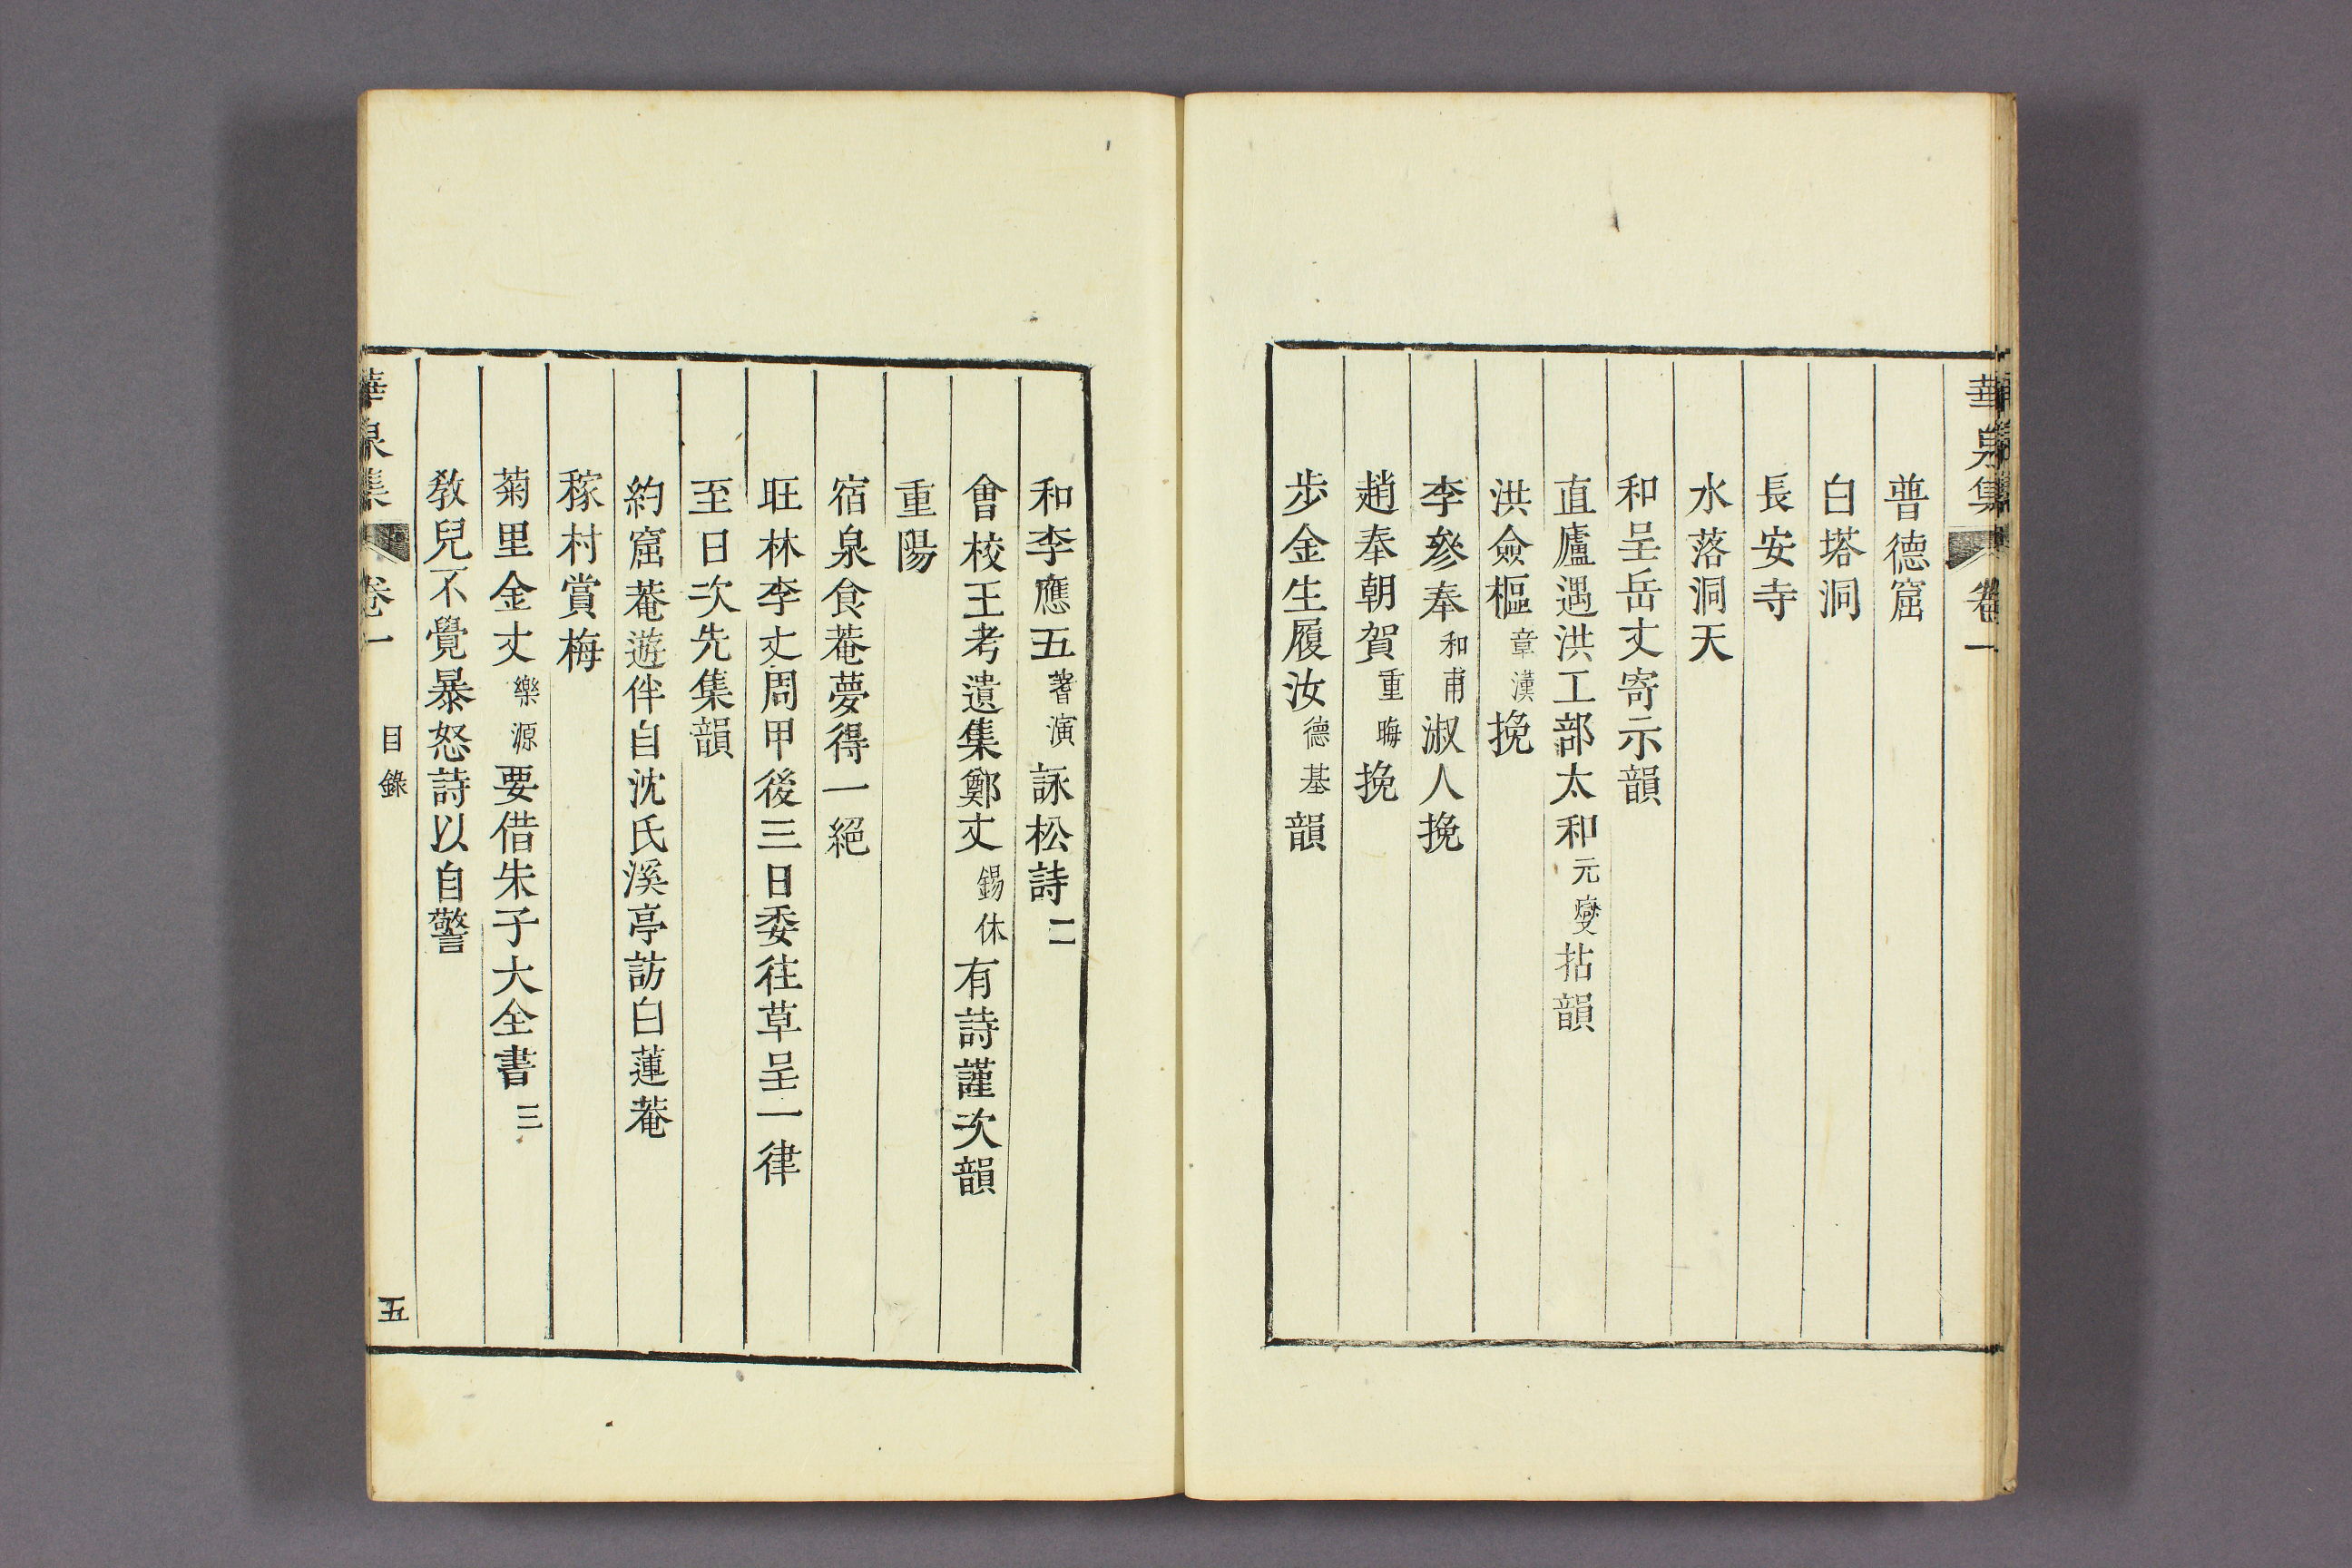 華泉集 卷一
普德窟
白塔洞
長安寺
水落洞天
和呈岳丈寄示韻
直廬遇洪工部太和元燮拈韻
洪僉樞章漢挽
李參奉和甫淑人挽
趙奉朝賀重晦挽
步金生履汝德基韻
和李應五蓍演詠松詩二
會校王考遺集鄭丈錫休有詩謹次韻
重陽
宿泉食菴夢得一絕
旺林李丈周甲後三日委往草呈一律
至日次先集韻
約窟菴遊伴自沈氏溪亭訪白蓮菴
稼村賞梅
菊里金丈樂源要借朱子大全書三
敎兒不覺暴怒詩以自警
華泉集 卷一 目錄 五